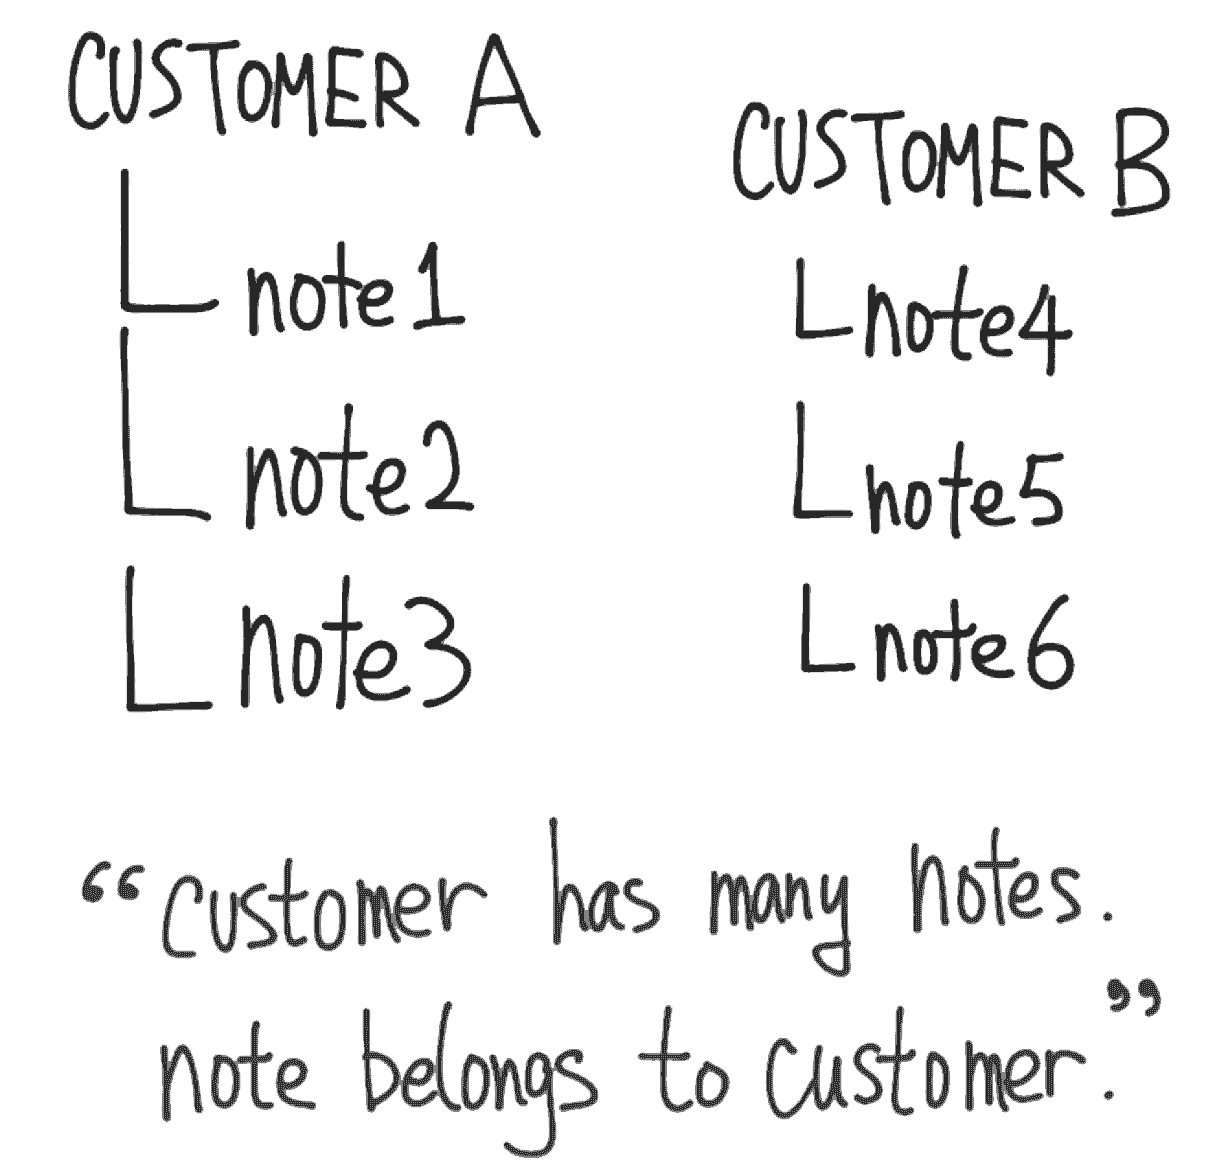 CUSTOMER A
note1
note2
note3
CUSTOMER B
note4
note5
note6
“customer has many notes.
note belongs to customer.”